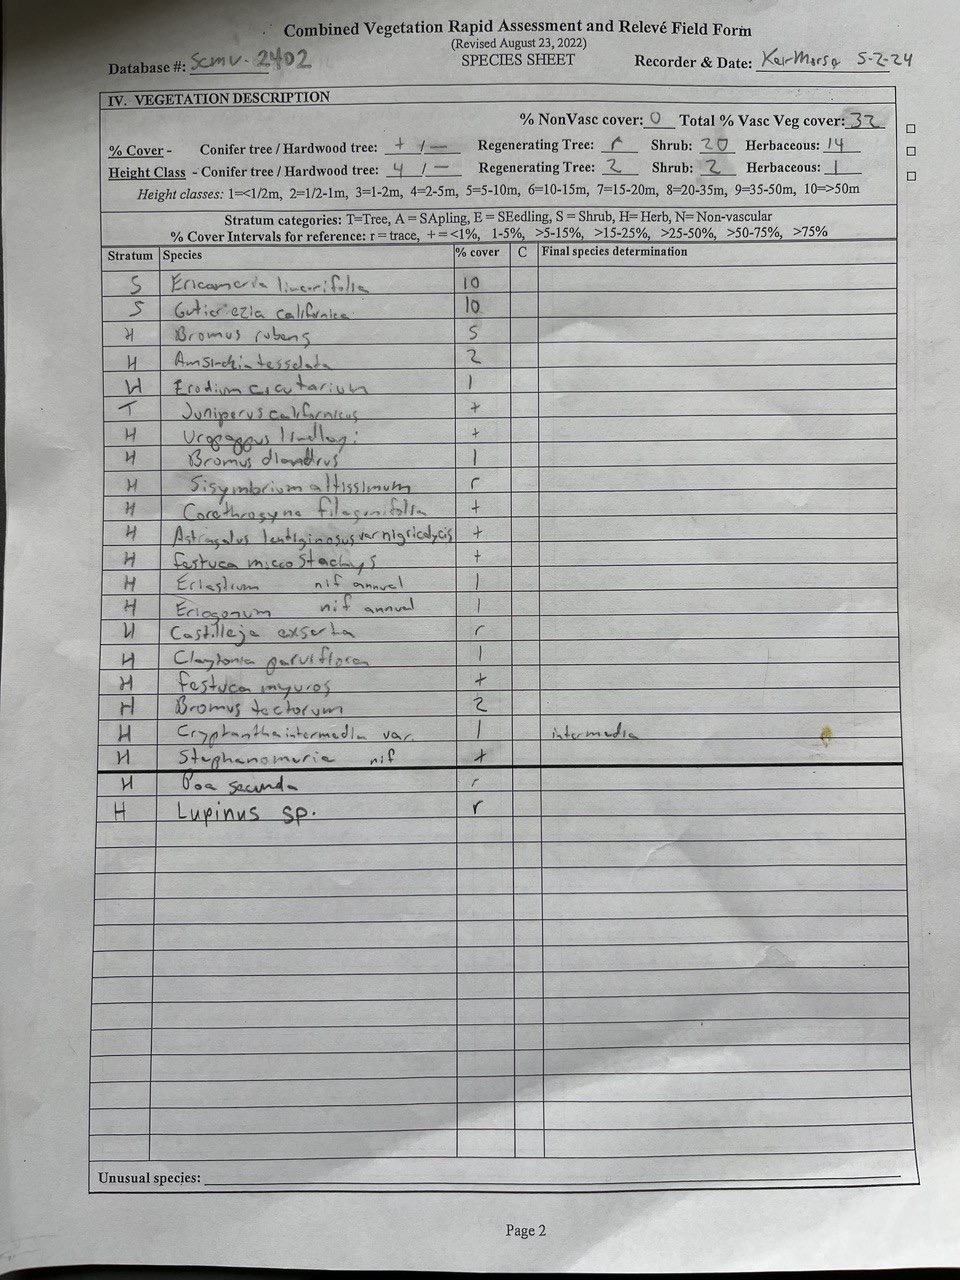 Combined Vegetation Rapid Assessment and Relevé Field Form
(Revised August 23, 2022)
Database #: SCMV-2402 SPECIES SHEET Recorder & Date: 5-2-24
IV. VEGETATION DESCRIPTION
% NonVasc cover: 0 Total % Vasc Veg cover: 32
% Cover - Conifer tree / Hardwood tree: + / — Regenerating Tree: r Shrub: 20 Herbaceous: 14
Height Class - Conifer tree / Hardwood tree: 4 / — Regenerating Tree: 2 Shrub: 2 Herbaceous: 1
Height classes: 1=<1/2m, 2=1/2-1m, 3=1-2m, 4=2-5m, 5=5-10m, 6=10-15m, 7=15-20m, 8=20-35m, 9=35-50m, 10=>50m
Stratum categories: T=Tree, A = SApling, E = SEedling, S = Shrub, H= Herb, N= Non-vascular
% Cover Intervals for reference: r = trace, + = <1%, 1-5%, >5-15%, >15-25%, >25-50%, >50-75%, >75%
Stratum Species % cover C Final species determination
S Ericameria linearifolia 10
S Gutierrezia californica 10
H Bromus rubens 5
H Amsinckia tessellata 2
H Erodium cicutarium 1
T Juniperus californicus +
H Uropappus lindleyi +
H Bromus diandrus 1
H Sisymbrium altissimum r
H Corethrogyne filaginifolia +
H Astragalus lentiginosus var nigricalycis +
H Festuca microstachys +
H Eriastrum nif annual 1
H Eriogonum nif annual 1
H Castilleja exserta r
H Claytonia parviflora 1
H Festuca myuros +
H Bromus tectorum 2
H Cryptantha intermedia var. 1 intermedia
H Stephanomeria nif +
H Poa secunda r
H Lupinus sp. r
Unusual species:
Page 2